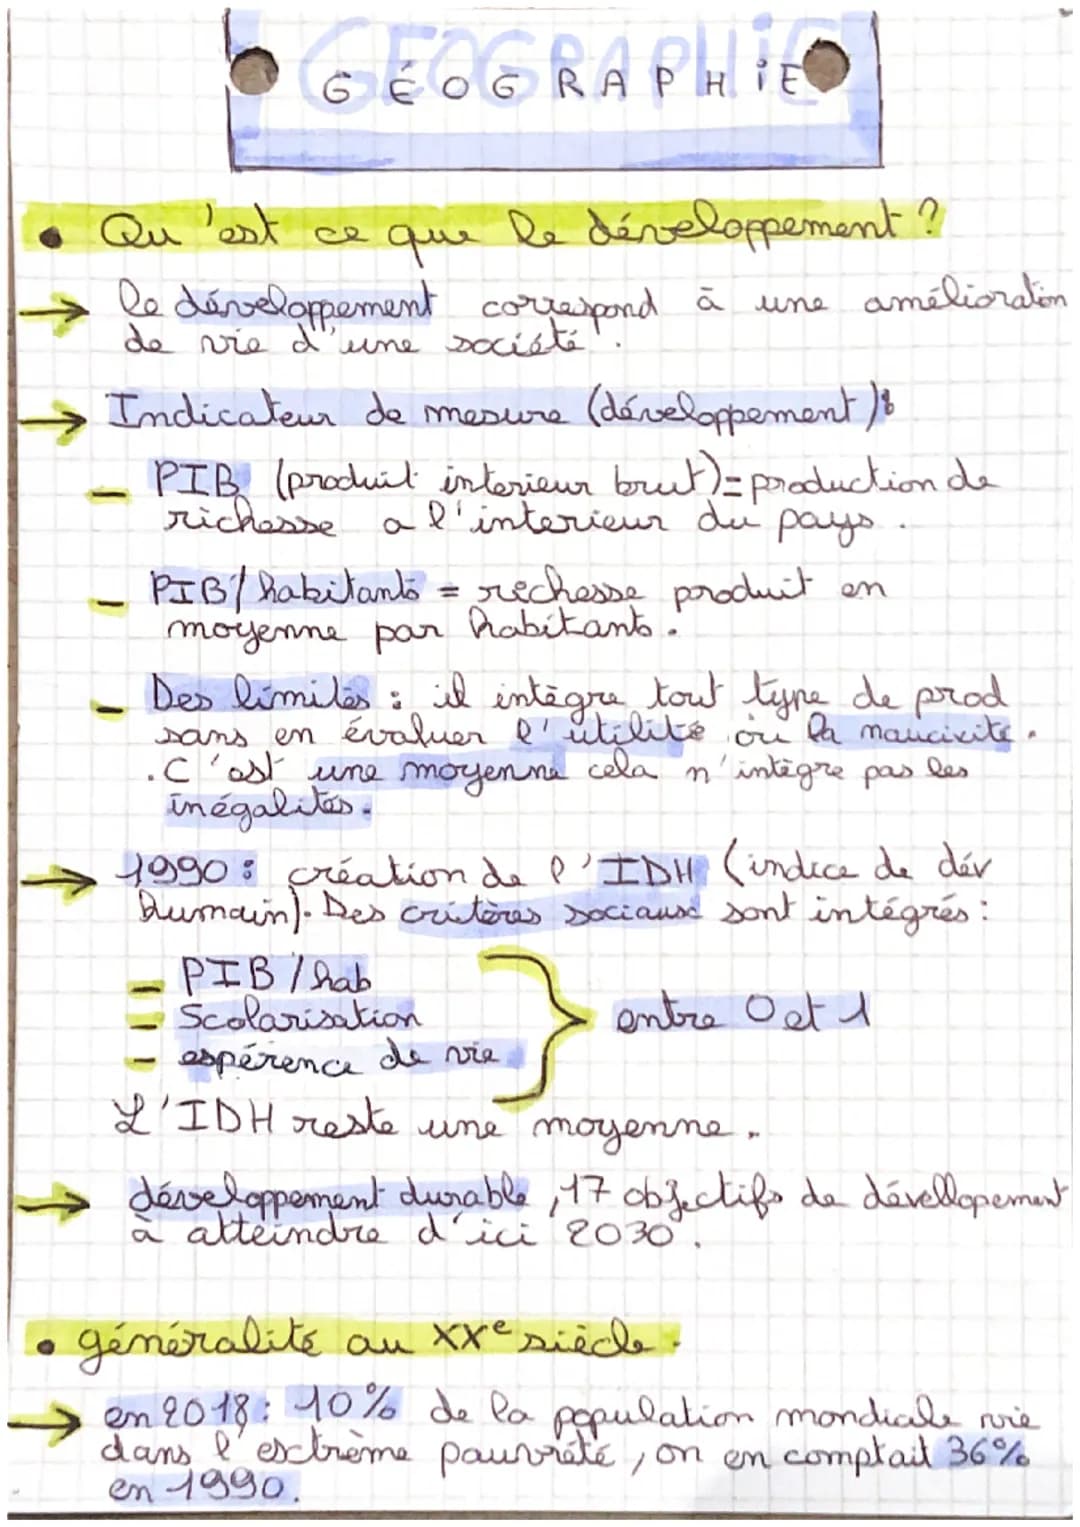 GÉOGRAPHiE
• Qu'est ce que le développement ?
→ le développement correspond à une amélioration
de vie d'une société.
→ Indicateur de mesure (développement):
- PIB (produit interieur brut)= production de
richesse a l'interieur du pays.
- PIB/habitants = richesse produit en
moyenne par habitants.
- Des limites : il intègre tout type de prod
sans en évaluer l'utilité ou la nocivité.
.C'est une moyenne cela n'intègre pas les
inégalités.
→ 1990 : création de l'IDH (indice de dév
humain). Des critères sociaux sont intégrés :
- PIB/hab
- Scolarisation
entre 0 et 1
- espérence de vie
L'IDH reste une moyenne.
→ développement durable, 17 objectifs de dévellopement
à atteindre d'ici 2030.
• généralité au XXe siècle.
→ en 2018: 10% de la population mondiale vie
dans l'extrème pauvreté, on en comptait 36%
en 1990.